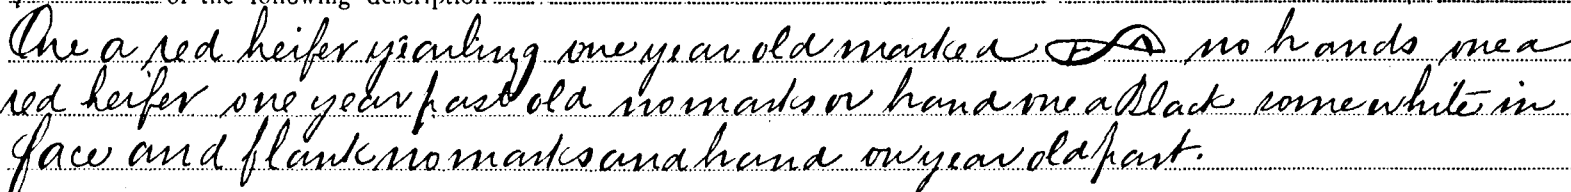 of the following description
One a red heifer yearling one year old marked no brands one a
red heifer one year past old no marks or brand one a Black some white in
face and flank no marks and brand on year old past.